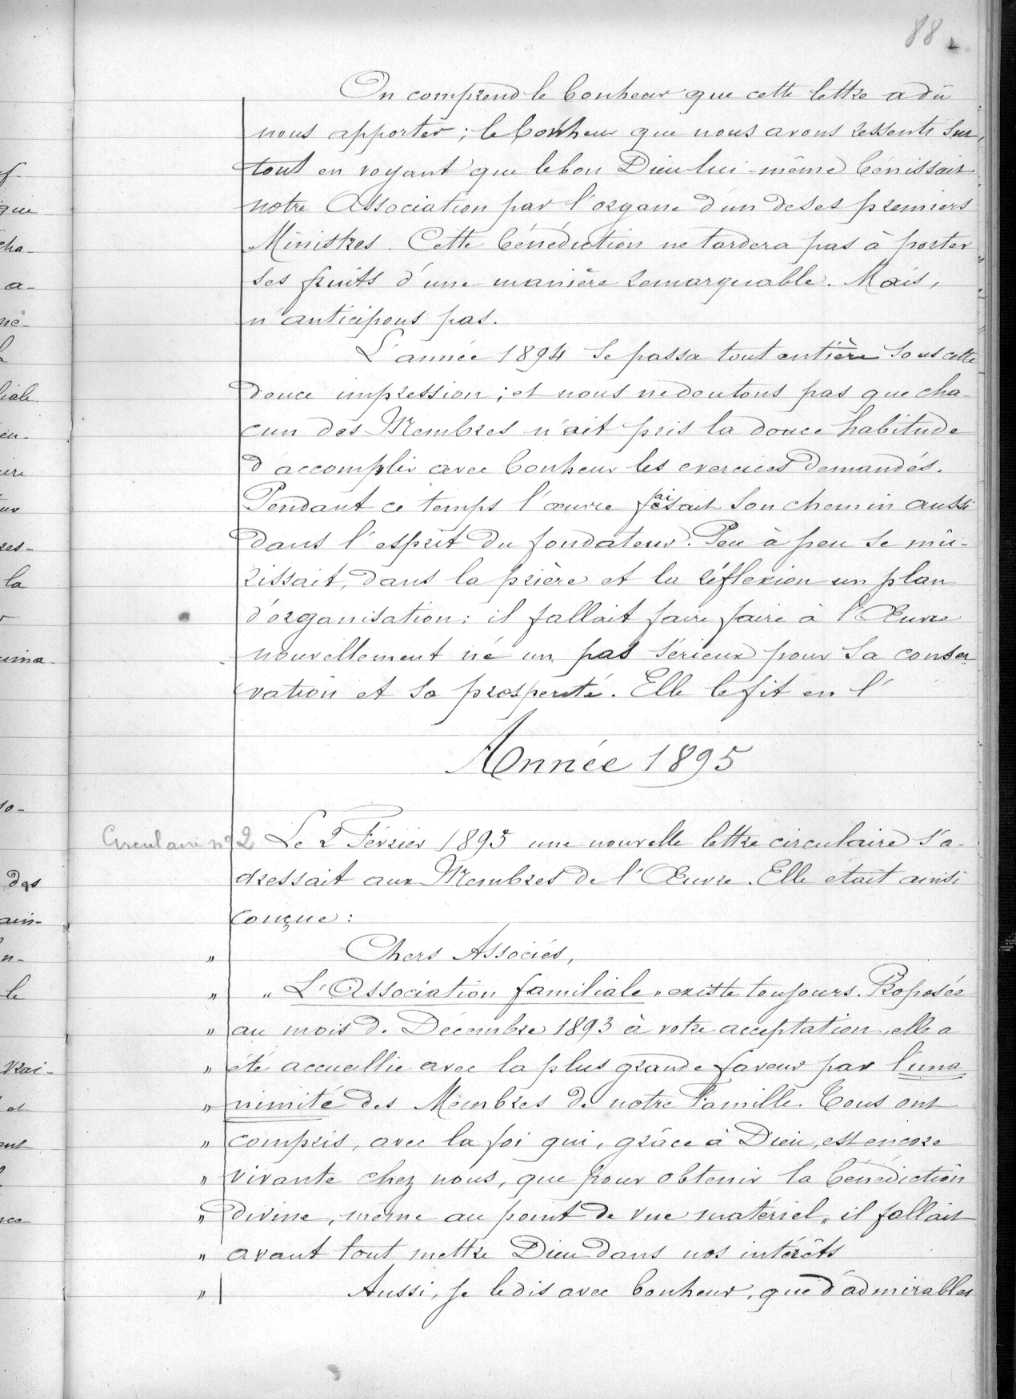 88.
On comprend le bonheur que cette lettre a dû
nous apporter ; le bonheur que nous avons ressenti sur,
tout en voyant que le bon Dieu lui-même bénissait
notre Association par l'organe d'un de ses premiers
Ministres. Cette bénédiction ne tardera pas à porter
ses fruits d'une manière remarquable. Mais,
n'anticipons pas.
L'année 1894 se passa tout entière sous cette
douce impression ; et nous ne doutons pas que cha-
cun des Membres n'ait pris la douce habitude
d'accomplir avec bonheur les exercices demandés.
Pendant ce temps l'œuvre faisait son chemin aussi
dans l'esprit du fondateur. Peu à peu se mû-
rissait, dans la prière et la réflexion un plan
d'organisation : il fallait faire faire à l'Œuvre
nouvellement né un pas sérieux pour sa conser-
vation et sa prosperité. Elle le fit en l'
Année 1895
Circulaire n° 2 Le 2 Février 1895 une nouvelle lettre circulaire s'a-
dressait aux Membres de l'Œuvre. Elle était ainsi
conçue :
" Chers Associés,
" " L'Association familiale " existe toujours. Proposée
" au mois de Décembre 1893 à votre acceptation, elle a
" été accueillie avec la plus grande faveur par l'una
" nimité des Membres de notre Famille. Tous ont
" compris, avec la foi qui, grâce à Dieu, est encore
" vivante chez nous, que pour obtenir la bénédiction
" divine, même au point de vue matériel, il fallait
" avant tout mettre Dieu dans nos intérêts
" Aussi, je le dis avec bonheur, que d'admirables